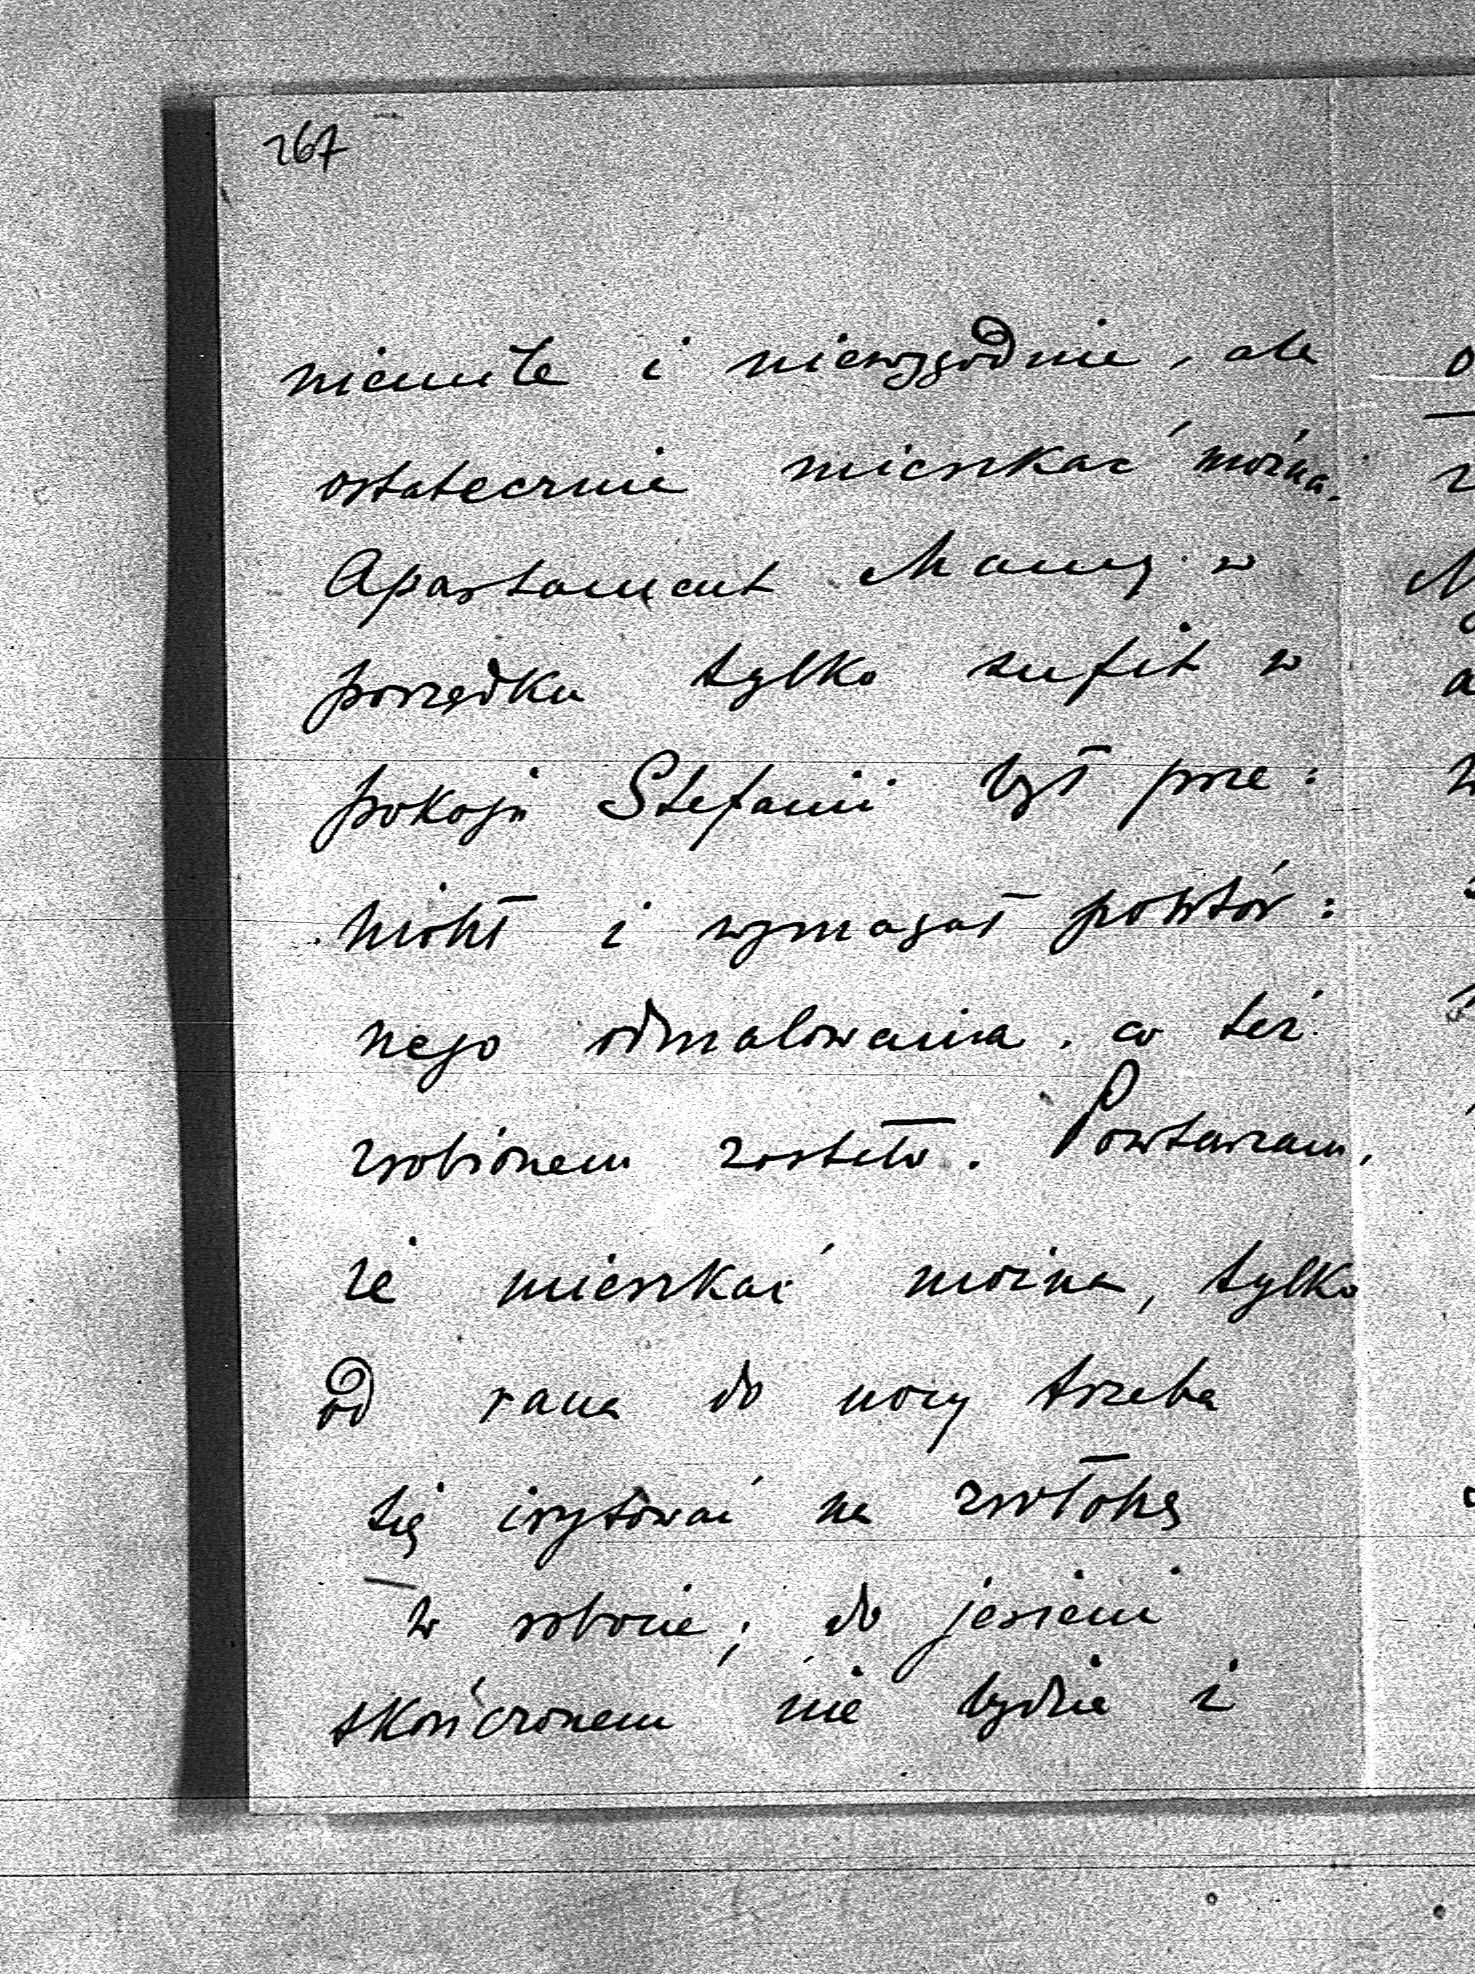 267
niemiłe i niewygodnie, ale
ostatecznie mieszkać można.
Apartament Mamy w
porządku tylko sufit w
pokoju Stefanii był prze:
mókł i wymagał powtór:
nego odmalowania, co też
zrobionem zostało. Powtarzam,
że mieszkać można, tylko
od rana do nocy trzeba
się irytować na zwłokę
w robocie; do jesieni
skończonem nie będzie i